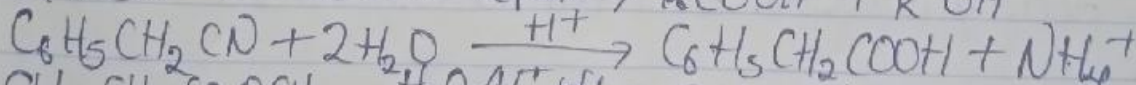 C₆H₅CH₂CN + 2H₂O —H+→ C₆H₅CH₂COOH + NH₄+